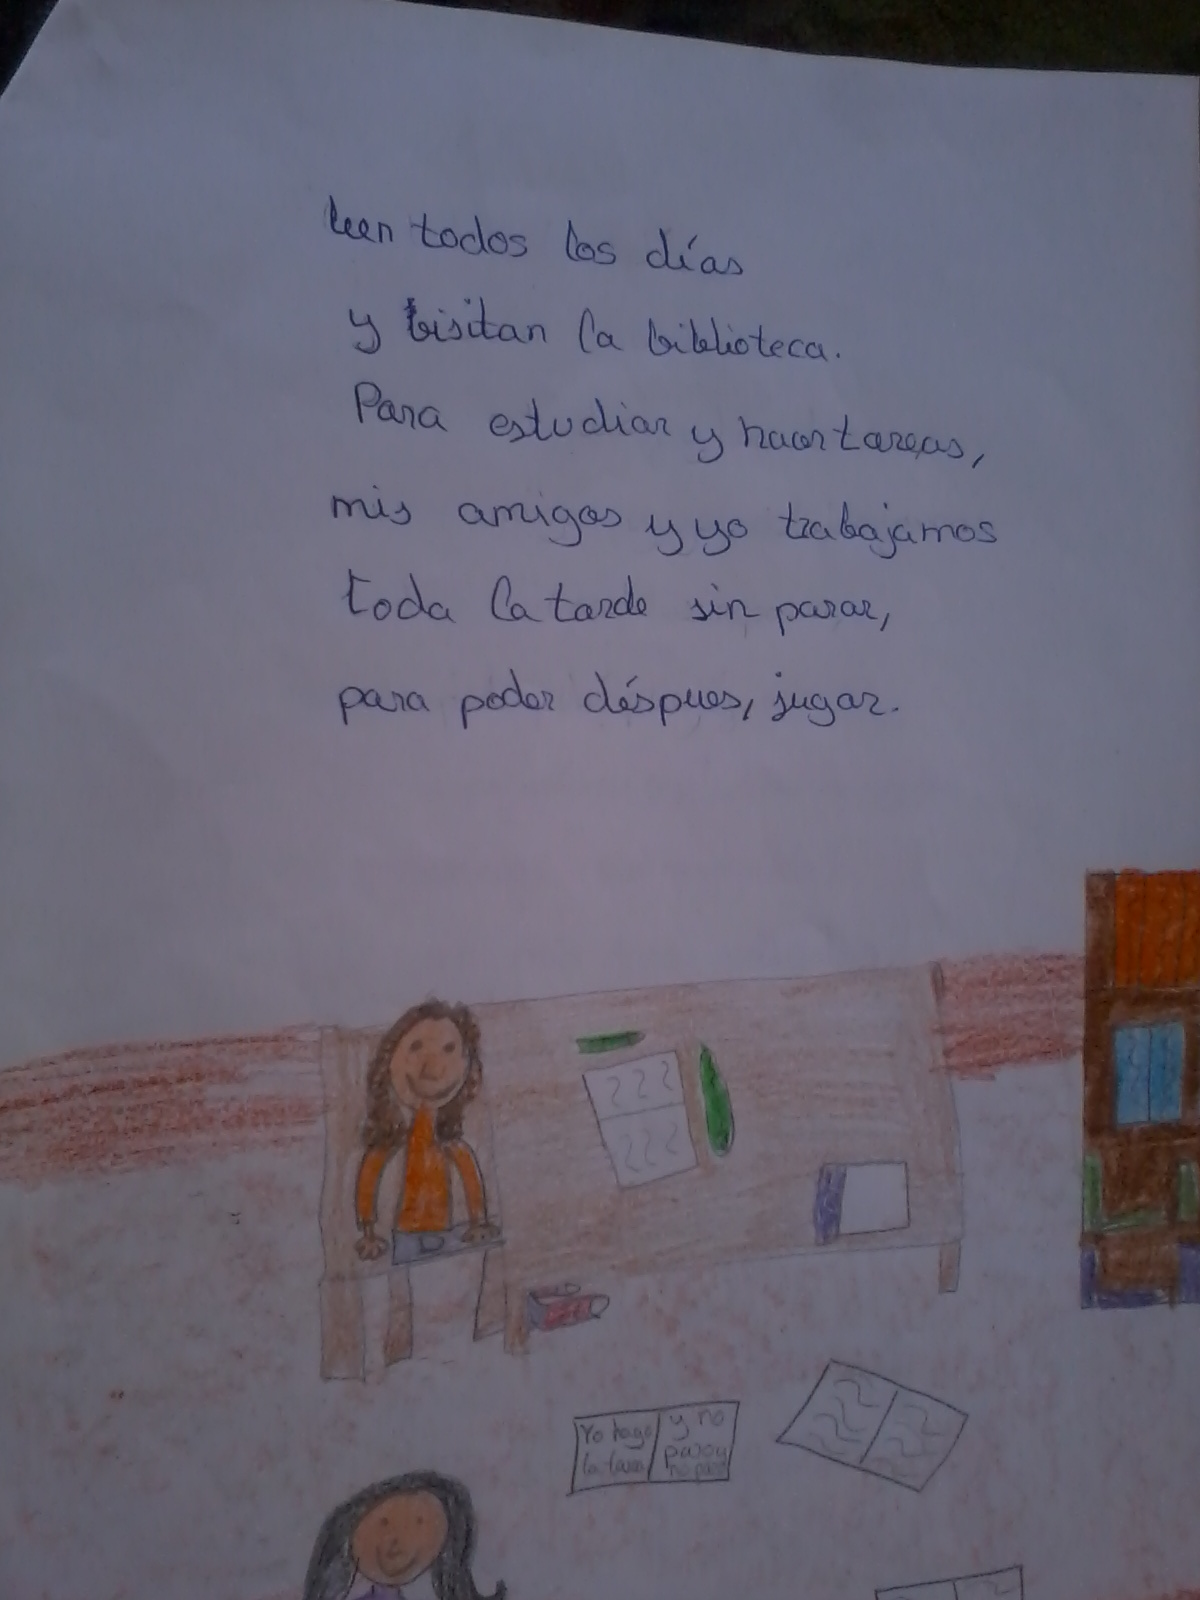 leen todos los días
y bisitan la biblioteca.
Para estudiar y hacer tareas,
mis amigos y yo trabajamos
toda la tarde sin parar,
para poder déspues, jugar.
Yo hago
la tarea
y no
paro y
no paro